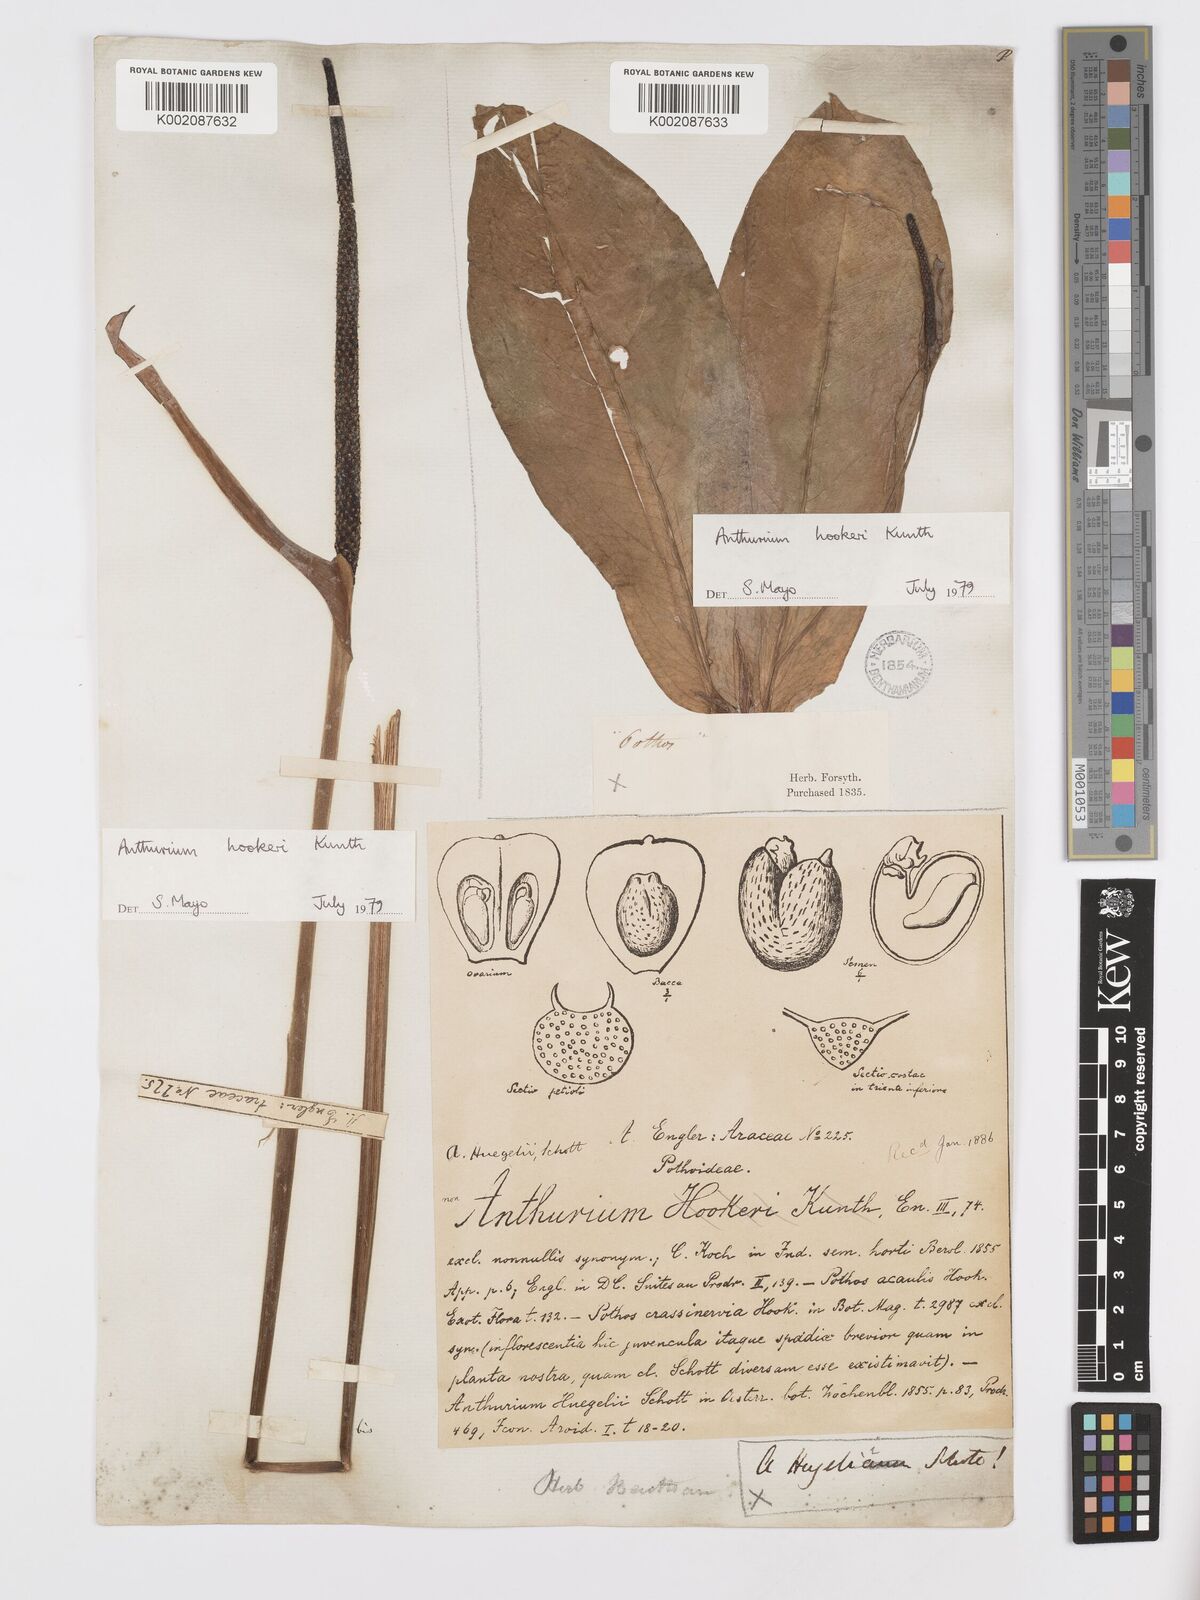 ROYAL BOTANIC GARDENS KEW
K002087632
ROYAL BOTANIC GARDENS KEW
K002087633
Anthurium hookeri Kunth
DET S. Mayo July 1979
HERBARIUM
1854
BENTHAMIANUM
"Pothos"
X
Herb. Forsyth.
Purchased 1835.
Anthurium hookeri Kunth
DET S. Mayo July 1979
ovarium
Bacca
3/1
Semen
6/1
Sectio petioli
Sectio costae
in triente inferiore
A. Engler: Araceae No 225.
A. Huegelii, Schott
A. Engler: Araceae No 225.
Recd Jan. 1886
Pothoideae.
non Anthurium Hookeri Kunth, En. III, 74.
excl. nonnullis synonym.; C. Koch in Ind. sem. horti Berol. 1855
App. p. 6; Engl. in DC. Suites au Prodr. II, 139. — Pothos acaulis Hook.
Exot. Flora t. 132. — Pothos crassinervia Hook. in Bot. Mag. t. 2987 excl.
syn. (inflorescentia hic juvencula itaque spadix brevior quam in
planta nostra, quam cl. Schott diversam esse existimavit). —
Anthurium Huegelii Schott in Oesterr. bot. Wochenbl. 1855. p. 83, Prodr.
469, Icon. Aroid. I. t 18-20.
bis
Herb
A
X
inches
D50 Illuminant, 2 degree observer
Density
Don Williams
M001053
centimeters
Royal Botanic Gardens
Kew
0 1 2 3 4 5 6 7 8 9 10
cm
copyright reserved